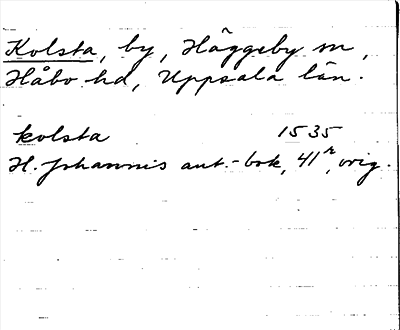 Kolsta, by, Häggeby sn,
Håbo hd, Uppsala län.
kolsta 1535
H. Johannis ant.-bok, 41 r, orig.